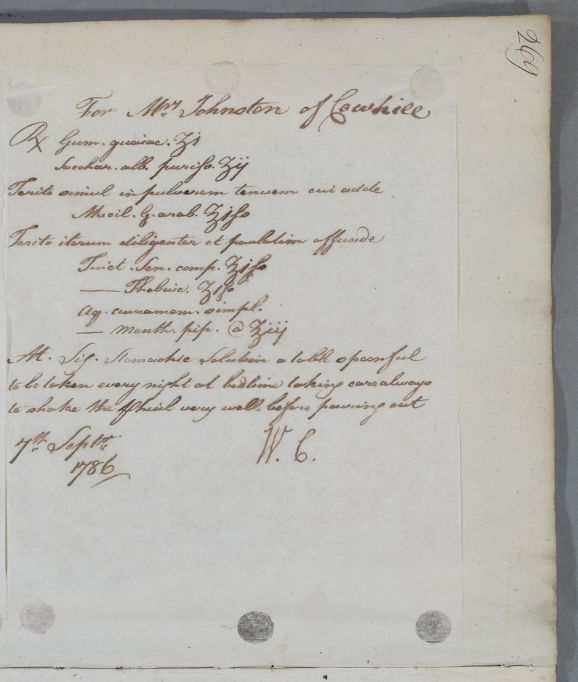 269
For Mrs Johnston of Cowhill
℞ Gum. guaiac. ʒi
Sacchar. alb. puriss. ʒij
Terito simul in pulverem tenuem cui adde
Mucil. G. arab. ʒiſs
Terito iterum diligenter et paulatim affunde
Tinct. Sen. comp. ʒiſs
— Thebaic. ʒiſs
Aq. cinnamom. simpl.
— Menth. pip. @ ʒiij
M. Sig. Stomachic Solution a table spoonful
to be taken every night at bedtime taking care always
to shake the Phial very well before pouring out
7th Septr
1786
W. C.